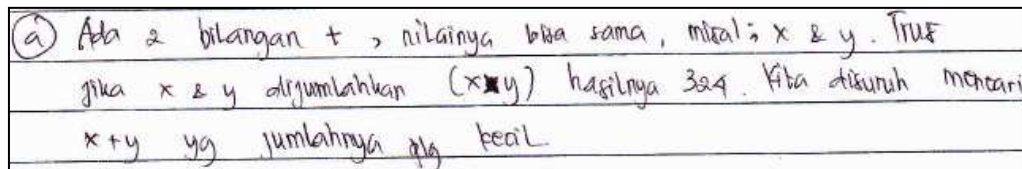 (a) Ada 2 bilangan + , nilainya bisa sama, misal; x & y. Trus
jika x & y dijumlahkan (x*y) hasilnya 324. Kita disuruh mencari
x+y yg jumlahnya plg kecil.